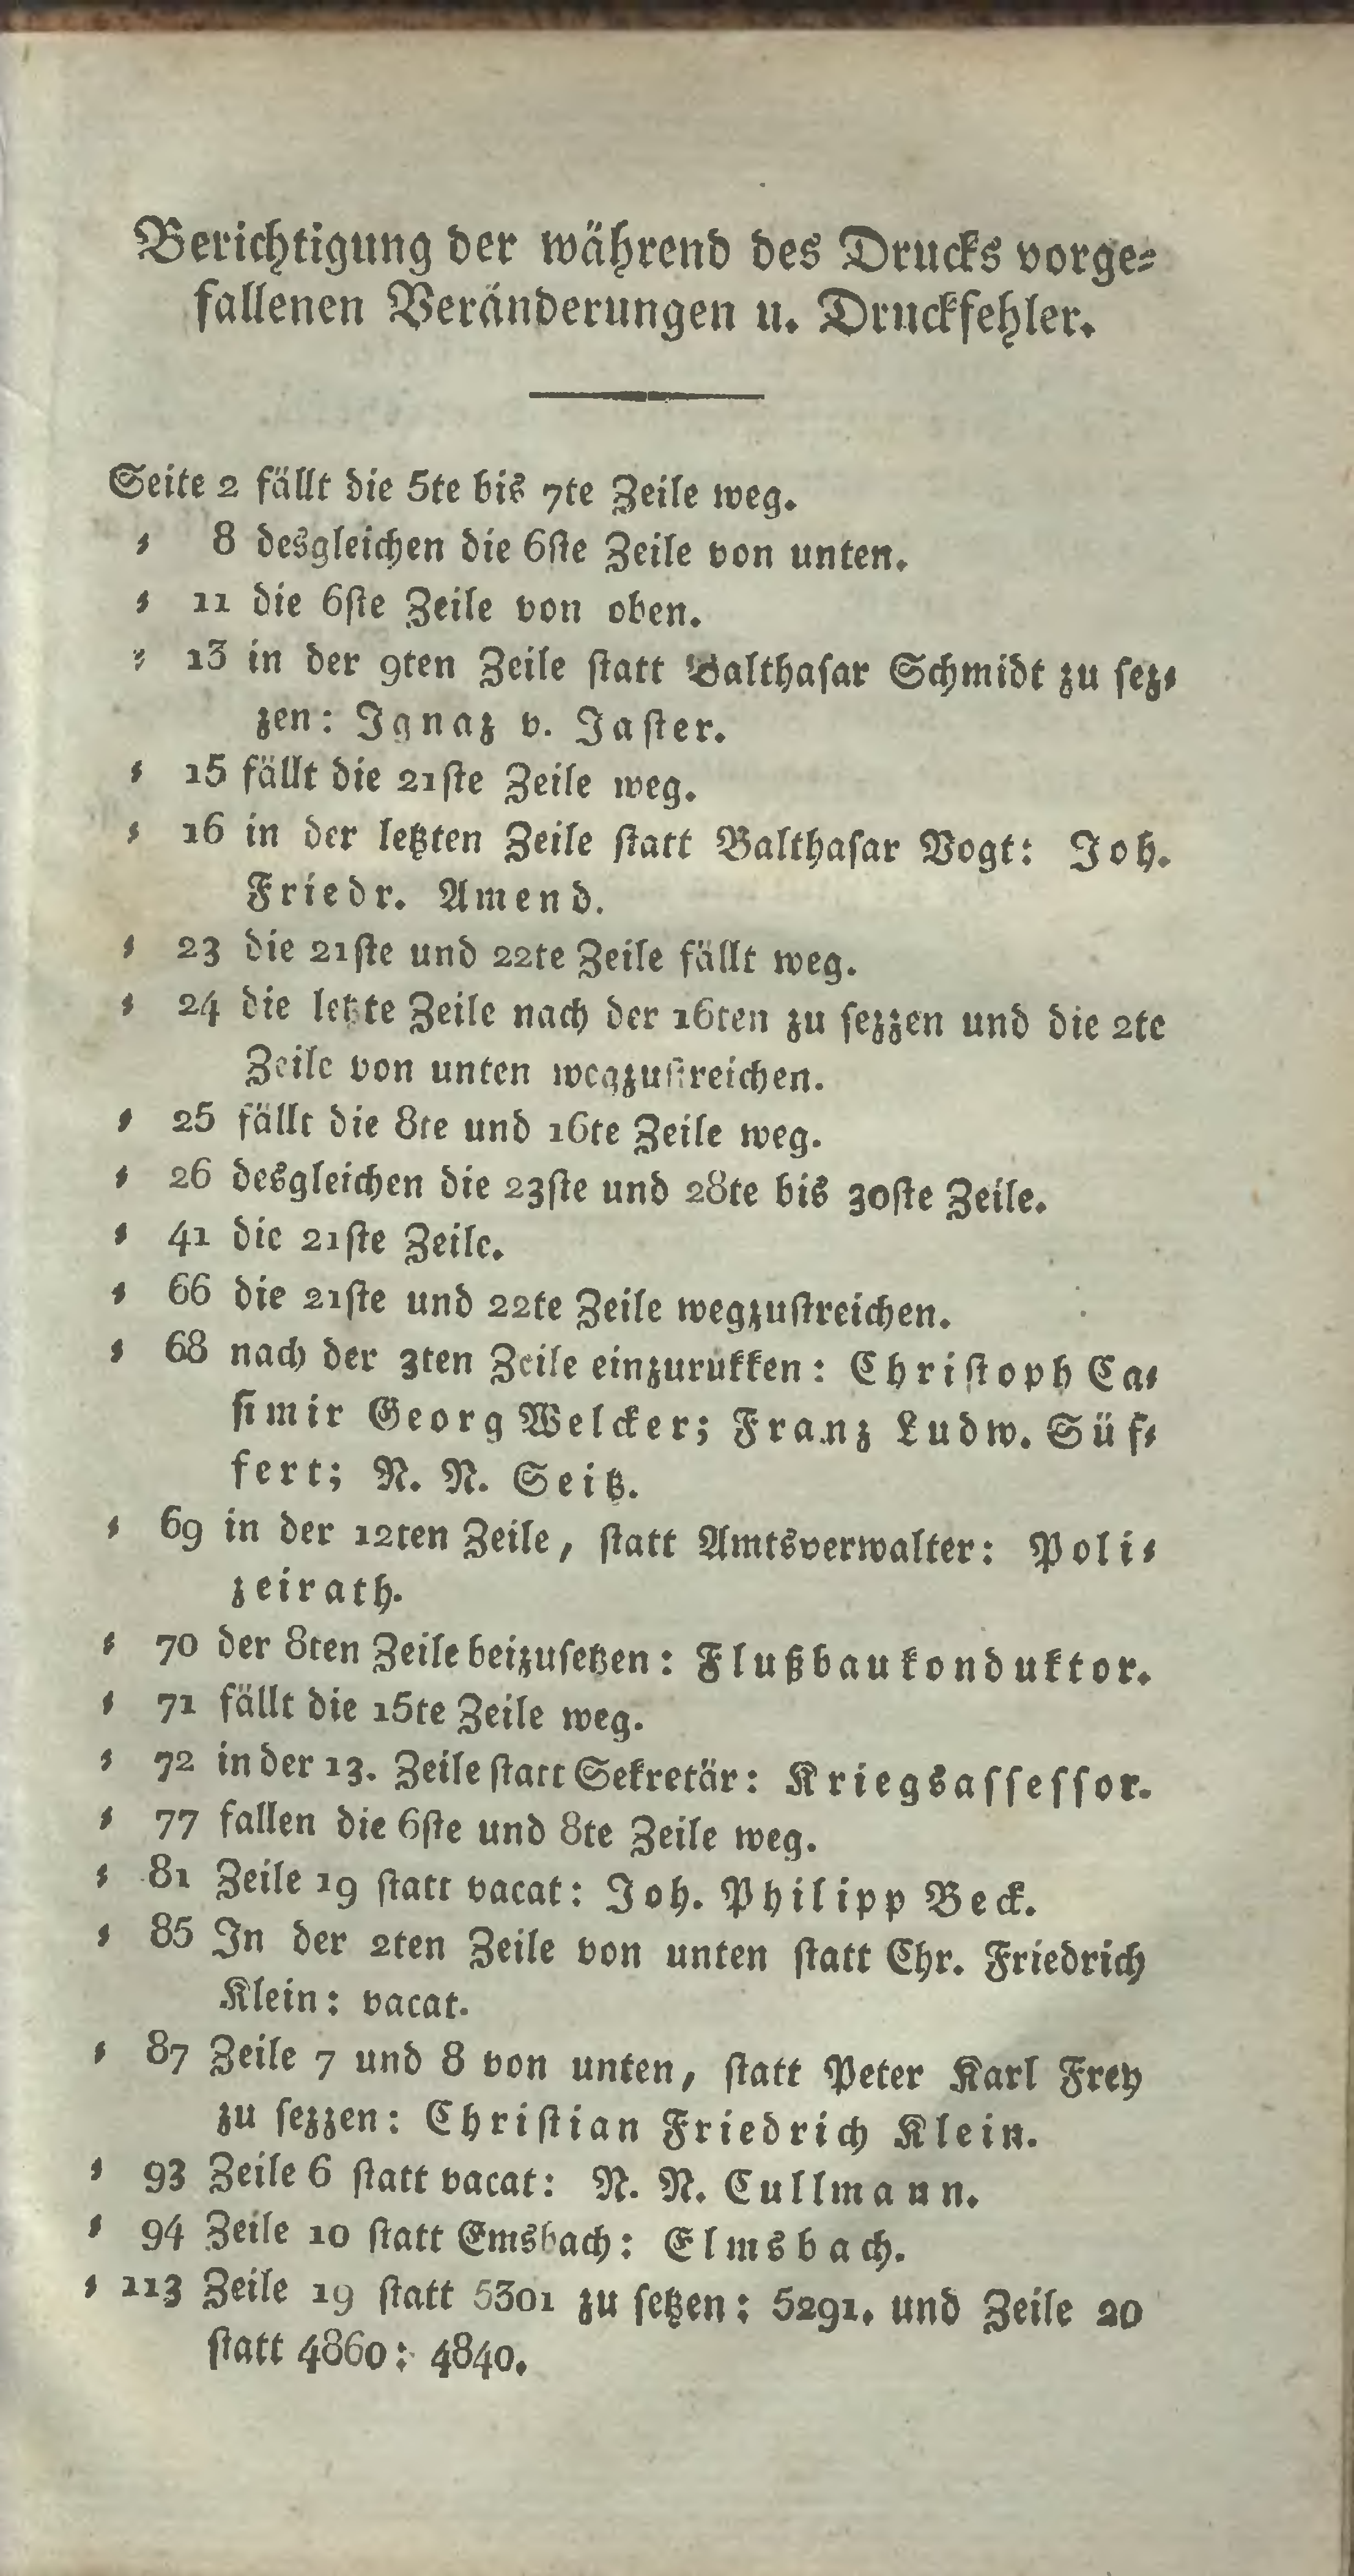 Berichtigung der während des Drucks vorge⸗
fallenen Veränderungen u. Druckfehler.
Seite 2 fällt die 5te bis 7te Zeile weg.
⸗ 8 desgleichen die 6ſte Zeile von unten.
⸗ 11 die 6ſte Zeile von oben.
⸗ 13 in der 9ten Zeile ſtatt Balthaſar Schmidt zu ſez⸗
zen: Ignaz v. Jaſter.
⸗ 15 fällt die 21ſte Zeile weg.
⸗ 16 in der letzten Zeile ſtatt Balthaſar Vogt: Joh.
Friedr. Amend.
⸗ 23 die 21ſte und 22te Zeile fällt weg.
⸗ 24 die letzte Zeile nach der 16ten zu ſezzen und die 2te
Zeile von unten wegzuſtreichen.
⸗ 25 fällt die 8te und 16te Zeile weg.
⸗ 26 desgleichen die 23ſte und 28te bis 30ſte Zeile.
⸗ 41 die 21ſte Zeile.
⸗ 66 die 21ſte und 22te Zeile wegzuſtreichen.
⸗ 68 nach der 3ten Zeile einzurükken: Chriſtoph Ca⸗
ſimir Georg Welcker; Franz Ludw. Süf⸗
fert; N. N. Seitz.
⸗ 69 in der 12ten Zeile, ſtatt Amtsverwalter: Poli⸗
zeirath.
⸗ 70 der 8ten Zeile beizuſetzen: Flußbaukonduktor.
⸗ 71 fällt die 15te Zeile weg.
⸗ 72 in der 13. Zeile ſtatt Sekretär: Kriegsaſſeſſor.
⸗ 77 fallen die 6ſte und 8te Zeile weg.
⸗ 81 Zeile 19 ſtatt vacat: Joh. Philipp Beck.
⸗ 85 In der 2ten Zeile von unten ſtatt Chr. Friedrich
Klein: vacat.
⸗ 87 Zeile 7 und 8 von unten, ſtatt Peter Karl Frey
zu ſezzen: Chriſtian Friedrich Klein.
⸗ 93 Zeile 6 ſtatt vacat: N. N. Cullmann.
⸗ 94 Zeile 10 ſtatt Emsbach: Elmsbach.
⸗ 113 Zeile 19 ſtatt 5301 zu ſetzen: 5291. und Zeile 20
ſtatt 4860: 4840.